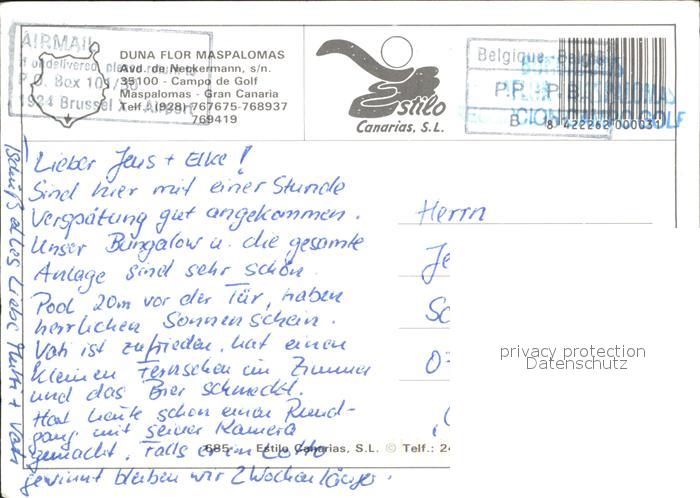 AIRMAIL
If undelivered, please return to
P.O. Box 101/80
1934 Brussel X - Airport
DUNA FLOR MASPALOMAS
Avd. de Neckermann, s/n.
35100 - Campo de Golf
Maspalomas - Gran Canaria
Telf. (928) 767675-768937
769419
Estilo
Canarias, S.L.
Belgique - België
P.P. P.B.
B
8 422262 000031
GOLF
Lieber Jens + Elke!
Sind hier mit einer Stunde
Verspätung gut angekommen.
Unser Bungalow u. die gesamte
Anlage sind sehr schön.
Pool 20m vor der Tür, haben
herrlichen Sonnenschein.
Vati ist zufrieden, hat einen
kleinen Fernseher im Zimmer
und das Bier schmeckt.
Hat heute schon einen Rund-
gang mit seiner Kamera
gemacht. Falls er im Lotto
gewinnt bleiben wir 2 Wochen länger.
Tschüß alles Liebe Mutti + Vati
Herrn
Je
Sc
privacy protection
Datenschutz
685.- Estilo Canarias, S.L. © Telf.: 24